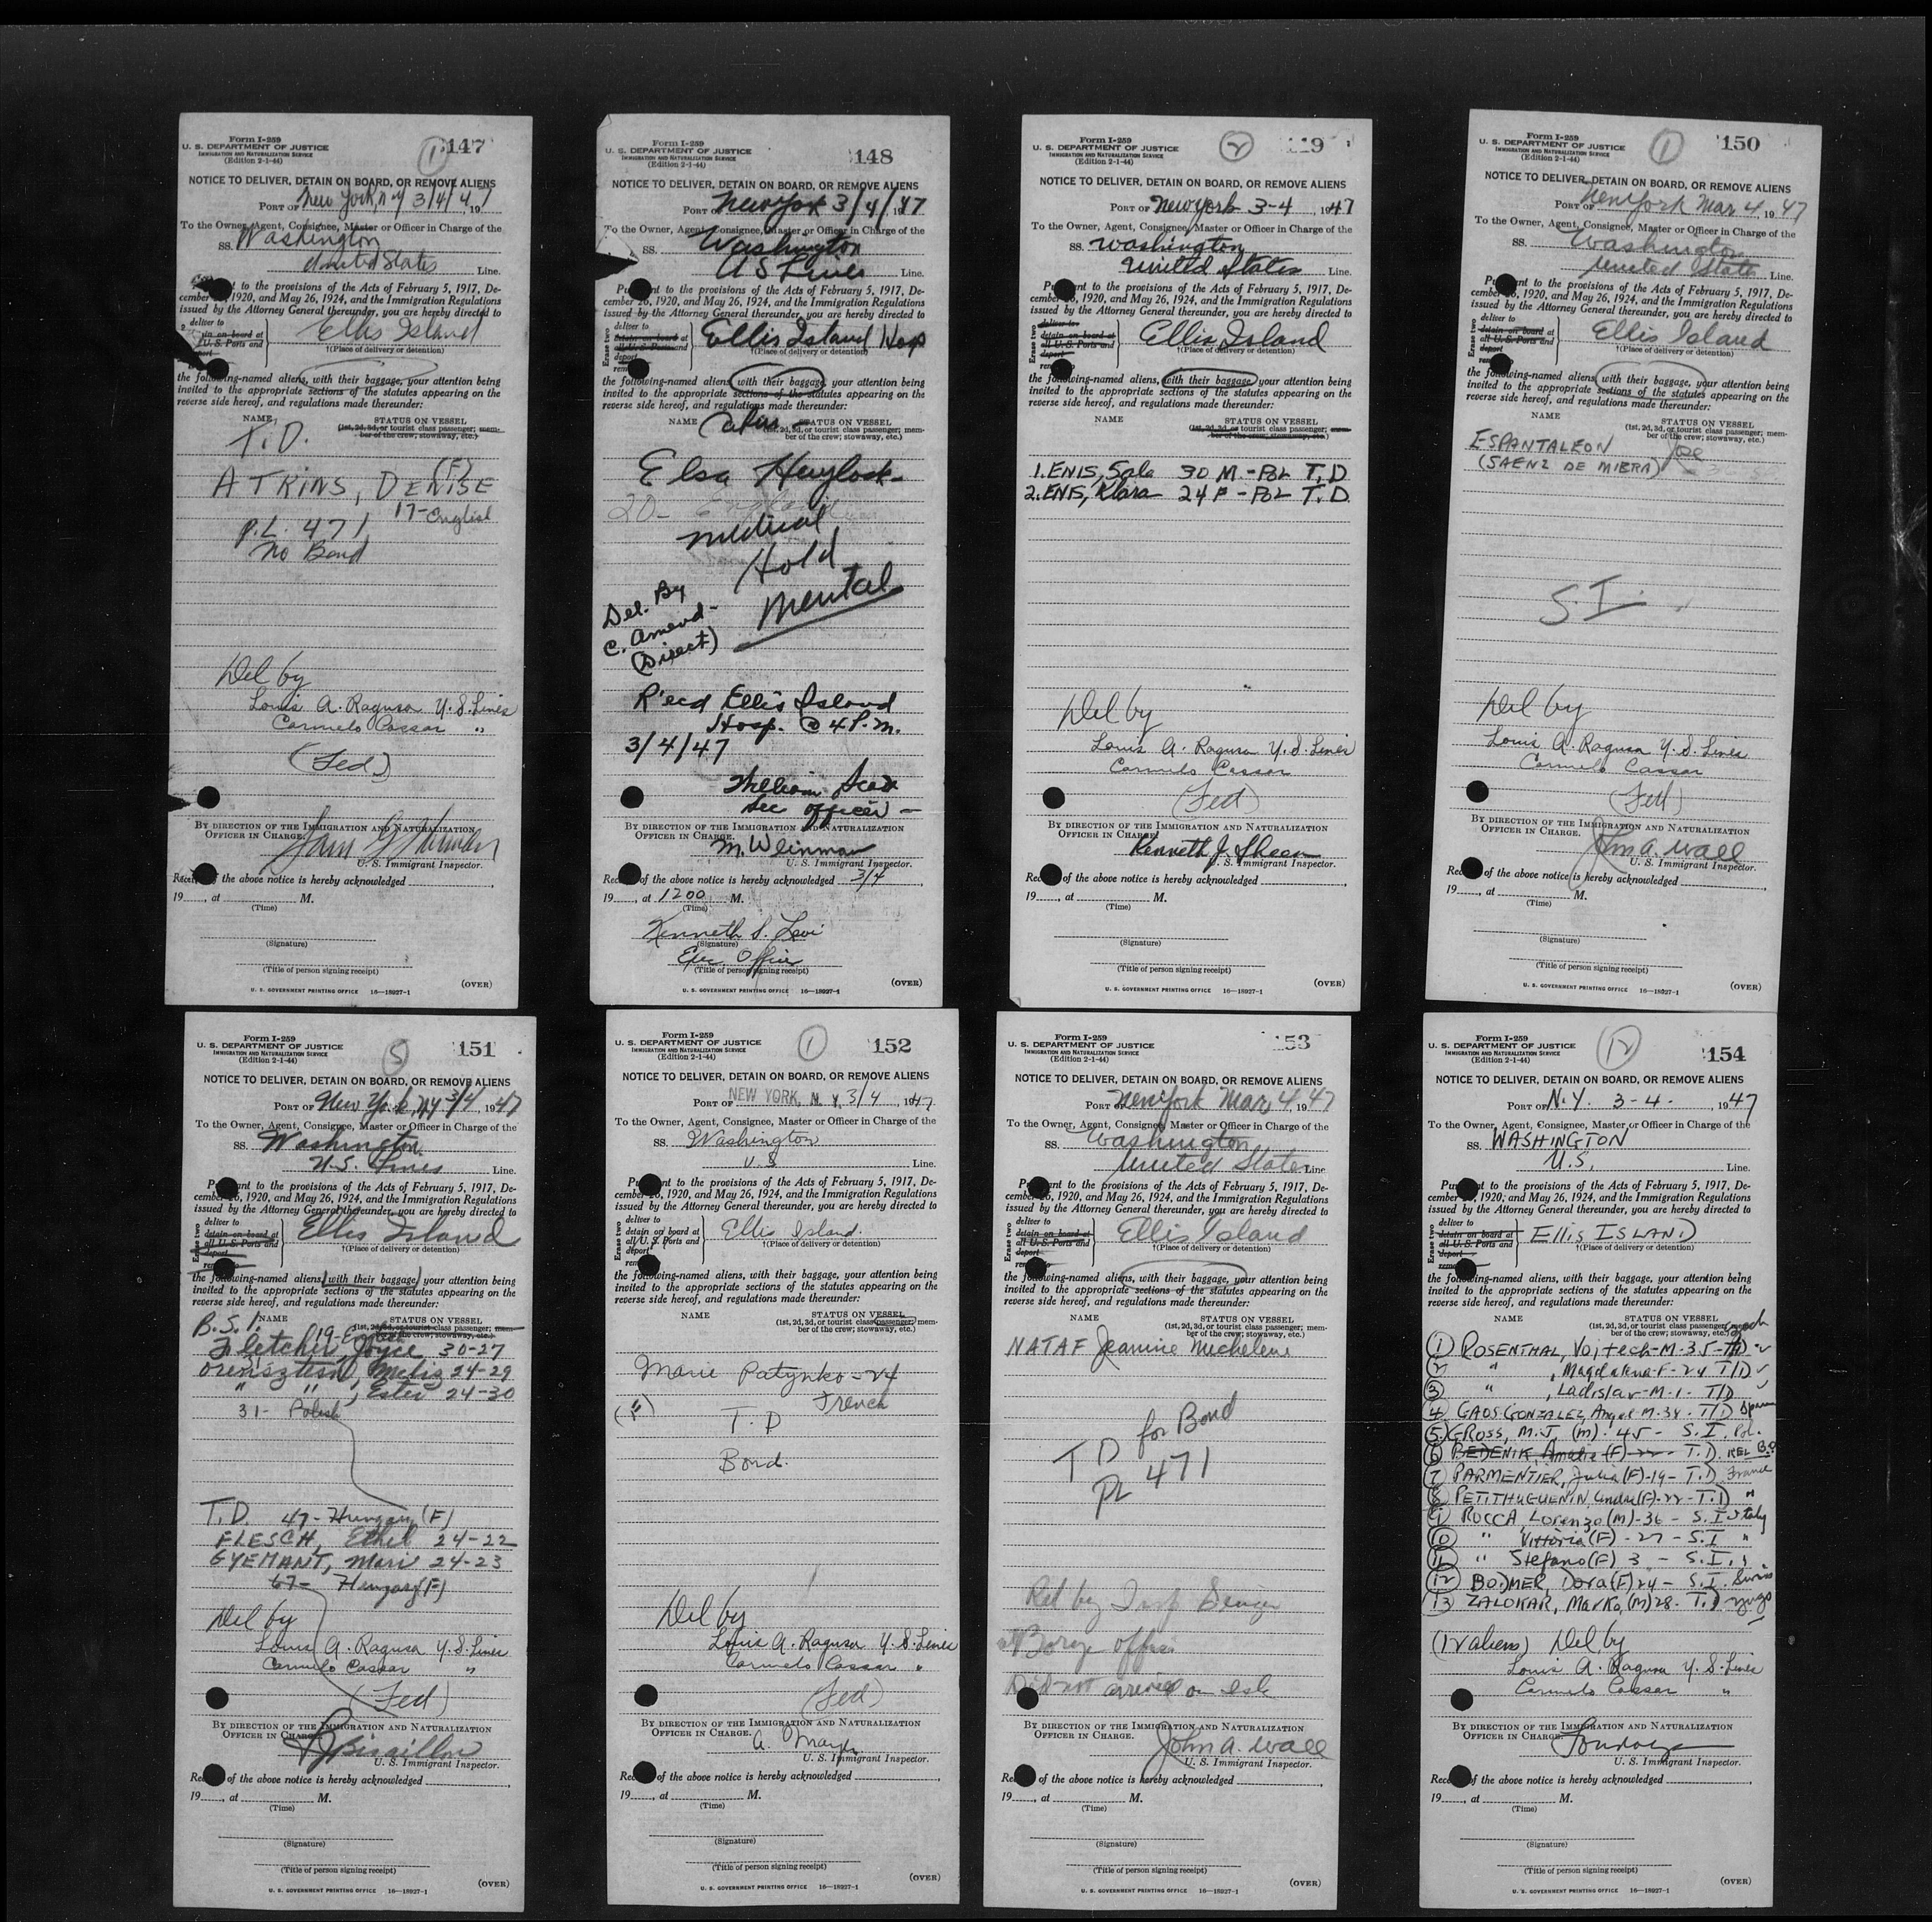 Form I-259
U. S. DEPARTMENT OF JUSTICE
IMMIGRATION AND NATURALIZATION SERVICE
(Edition 2-1-44)
1
147
NOTICE TO DELIVER, DETAIN ON BOARD, OR REMOVE ALIENS
PORT OF New York, N Y 3/4/47, 19
To the Owner, Agent, Consignee, Master or Officer in Charge of the
SS. Washington
United States Line.
to the provisions of the Acts of February 5, 1917, De-
cember , 1920, and May 26, 1924, and the Immigration Regulations
issued by the Attorney General thereunder, you are hereby directed to
deliver to
in on board at
U. S. Ports and
Ellis Island
†(Place of delivery or detention)
the following-named aliens, with their baggage, your attention being
invited to the appropriate sections of the statutes appearing on the
reverse side hereof, and regulations made thereunder:
NAME STATUS ON VESSEL
(1st, 2d, 3d, or tourist class passenger; mem-
ber of the crew; stowaway, etc.)
T. D.
ATKINS, DENISE (F)
17- English
P.L. 471
No Bond
Del by
Louis A. Ragusa U.S. Lines
Carmelo Cassar "
(Fed)
BY DIRECTION OF THE IMMIGRATION AND NATURALIZATION
OFFICER IN CHARGE.
U. S. Immigrant Inspector.
of the above notice is hereby acknowledged
19 , at M.
(Time)
(Signature)
(Title of person signing receipt)
(OVER)
U. S. GOVERNMENT PRINTING OFFICE 16—18927-1
Form I-259
U. S. DEPARTMENT OF JUSTICE
IMMIGRATION AND NATURALIZATION SERVICE
(Edition 2-1-44)
148
NOTICE TO DELIVER, DETAIN ON BOARD, OR REMOVE ALIENS
PORT OF New York 3/4/47
To the Owner, Agent, Consignee, Master or Officer in Charge of the
SS. Washington
U S Lines Line.
to the provisions of the Acts of February 5, 1917, De-
cember 26, 1920, and May 26, 1924, and the Immigration Regulations
issued by the Attorney General thereunder, you are hereby directed to
Erase two
deliver to
detain on board at
all U. S. Ports and
deport
Ellis Island Hosp
†(Place of delivery or detention)
the following-named aliens, with their baggage, your attention being
invited to the appropriate sections of the statutes appearing on the
reverse side hereof, and regulations made thereunder:
NAME STATUS ON VESSEL
Cabin
(1st, 2d, 3d, or tourist class passenger; mem-
ber of the crew; stowaway, etc.)
Elsa Haylock
20- England
medical
Hold
Mental
Del. By
C. Amend-
(Direct)
R'ecd Ellis Island
Hosp. @ 4 P.M.
3/4/47
William
Sec officer
BY DIRECTION OF THE IMMIGRATION AND NATURALIZATION
OFFICER IN CHARGE.
M. Weinman
U. S. Immigrant Inspector.
of the above notice is hereby acknowledged 3/4
19 , at 1200 M.
(Time)
Kenneth S. Levi
(Signature)
Exec. Officer
(Title of person signing receipt)
(OVER)
U. S. GOVERNMENT PRINTING OFFICE 16—18927-1
Form I-259
U. S. DEPARTMENT OF JUSTICE
IMMIGRATION AND NATURALIZATION SERVICE
(Edition 2-1-44)
2
149
NOTICE TO DELIVER, DETAIN ON BOARD, OR REMOVE ALIENS
PORT OF New York 3-4 , 1947
To the Owner, Agent, Consignee, Master or Officer in Charge of the
SS. Washington
United States Line.
to the provisions of the Acts of February 5, 1917, De-
cember 26, 1920, and May 26, 1924, and the Immigration Regulations
issued by the Attorney General thereunder, you are hereby directed to
Erase two
deliver to
detain on board at
all U. S. Ports and
deport
Ellis Island
†(Place of delivery or detention)
the following-named aliens, with their baggage, your attention being
invited to the appropriate sections of the statutes appearing on the
reverse side hereof, and regulations made thereunder:
NAME STATUS ON VESSEL
(1st, 2d, 3d, or tourist class passenger; mem-
ber of the crew; stowaway, etc.)
1. ENIS, Sala 30 M - POL T.D
2. ENIS, Klara 24 F - POL T.D.
Del by
Louis A. Ragusa U.S. Lines
Carmelo Cassar
(Fed)
BY DIRECTION OF THE IMMIGRATION AND NATURALIZATION
OFFICER IN CHARGE.
Kenneth J. Sheen
U. S. Immigrant Inspector.
of the above notice is hereby acknowledged
19 , at M.
(Time)
(Signature)
(Title of person signing receipt)
(OVER)
U. S. GOVERNMENT PRINTING OFFICE 16—18927-1
Form I-259
U. S. DEPARTMENT OF JUSTICE
IMMIGRATION AND NATURALIZATION SERVICE
(Edition 2-1-44)
1
150
NOTICE TO DELIVER, DETAIN ON BOARD, OR REMOVE ALIENS
PORT OF New York Mar 4, 1947
To the Owner, Agent, Consignee, Master or Officer in Charge of the
SS. Washington
United States Line.
to the provisions of the Acts of February 5, 1917, De-
cember 26, 1920, and May 26, 1924, and the Immigration Regulations
issued by the Attorney General thereunder, you are hereby directed to
Erase two
deliver to
detain on board at
all U. S. Ports and
deport
Ellis Island
†(Place of delivery or detention)
the following-named aliens, with their baggage, your attention being
invited to the appropriate sections of the statutes appearing on the
reverse side hereof, and regulations made thereunder:
NAME STATUS ON VESSEL
(1st, 2d, 3d, or tourist class passenger; mem-
ber of the crew; stowaway, etc.)
ESPANTALEON Jose
(SAENZ DE MIBRA)
S.I.
Del by
Louis A. Ragusa U.S. Lines
Carmelo Cassar
(Fed)
BY DIRECTION OF THE IMMIGRATION AND NATURALIZATION
OFFICER IN CHARGE.
John A. Wall
U. S. Immigrant Inspector.
of the above notice is hereby acknowledged
19 , at M.
(Time)
(Signature)
(Title of person signing receipt)
(OVER)
U. S. GOVERNMENT PRINTING OFFICE 16—18927-1
Form I-259
U. S. DEPARTMENT OF JUSTICE
IMMIGRATION AND NATURALIZATION SERVICE
(Edition 2-1-44)
5
151
NOTICE TO DELIVER, DETAIN ON BOARD, OR REMOVE ALIENS
PORT OF New York, NY 3/4, 1947
To the Owner, Agent, Consignee, Master or Officer in Charge of the
SS. Washington
U.S. Lines Line.
to the provisions of the Acts of February 5, 1917, De-
cember 26, 1920, and May 26, 1924, and the Immigration Regulations
issued by the Attorney General thereunder, you are hereby directed to
Erase two
deliver to
detain on board at
all U. S. Ports and
deport
Ellis Island
†(Place of delivery or detention)
the following-named aliens, with their baggage, your attention being
invited to the appropriate sections of the statutes appearing on the
reverse side hereof, and regulations made thereunder:
B.S.I. NAME STATUS ON VESSEL
(1st, 2d, 3d, or tourist class passenger; mem-
ber of the crew; stowaway, etc.)
19-English
Fletcher, Joyce 30-27
24-29
" " , Ester 24-30
31- Polish
T.D. 47-Hungary (F)
FLESCH, Ethel 24-22
GYEMANT, Mari 24-23
67- Hungary (F)
Del by
Louis A. Ragusa U.S. Lines
Carmelo Cassar "
(Fed)
BY DIRECTION OF THE IMMIGRATION AND NATURALIZATION
OFFICER IN CHARGE.
Bissillon
U. S. Immigrant Inspector.
of the above notice is hereby acknowledged
19 , at M.
(Time)
(Signature)
(Title of person signing receipt)
(OVER)
U. S. GOVERNMENT PRINTING OFFICE 16—18927-1
Form I-259
U. S. DEPARTMENT OF JUSTICE
IMMIGRATION AND NATURALIZATION SERVICE
(Edition 2-1-44)
1
152
NOTICE TO DELIVER, DETAIN ON BOARD, OR REMOVE ALIENS
PORT OF NEW YORK, N. Y. 3/4 , 1947
To the Owner, Agent, Consignee, Master or Officer in Charge of the
SS. Washington
U.S Line.
to the provisions of the Acts of February 5, 1917, De-
cember 26, 1920, and May 26, 1924, and the Immigration Regulations
issued by the Attorney General thereunder, you are hereby directed to
Erase two
deliver to
detain on board at
all U. S. Ports and
deport
Ellis Island
†(Place of delivery or detention)
the following-named aliens, with their baggage, your attention being
invited to the appropriate sections of the statutes appearing on the
reverse side hereof, and regulations made thereunder:
NAME STATUS ON VESSEL
(1st, 2d, 3d, or tourist class passenger; mem-
ber of the crew; stowaway, etc.)
Marie Patynko - 24
French
T. D
Bond.
Del by
Louis A. Ragusa U.S. Lines
Carmelo Cassar "
(Fed)
BY DIRECTION OF THE IMMIGRATION AND NATURALIZATION
OFFICER IN CHARGE.
U. S. Immigrant Inspector.
of the above notice is hereby acknowledged
19 , at M.
(Time)
(Signature)
(Title of person signing receipt)
(OVER)
U. S. GOVERNMENT PRINTING OFFICE 16—18927-1
Form I-259
U. S. DEPARTMENT OF JUSTICE
IMMIGRATION AND NATURALIZATION SERVICE
(Edition 2-1-44)
153
NOTICE TO DELIVER, DETAIN ON BOARD, OR REMOVE ALIENS
PORT OF New York Mar, 4, 1947
To the Owner, Agent, Consignee, Master or Officer in Charge of the
SS. Washington
United States Line
to the provisions of the Acts of February 5, 1917, De-
cember 26, 1920, and May 26, 1924, and the Immigration Regulations
issued by the Attorney General thereunder, you are hereby directed to
Erase two
deliver to
detain on board at
all U. S. Ports and
deport
Ellis Island
†(Place of delivery or detention)
the following-named aliens, with their baggage, your attention being
invited to the appropriate sections of the statutes appearing on the
reverse side hereof, and regulations made thereunder:
NAME STATUS ON VESSEL
(1st, 2d, 3d, or tourist class passenger; mem-
ber of the crew; stowaway, etc.)
NATAF Jeanine Michelene
T D for Bond
PL 471
Rel by Insp
Barge office
Did not arrive on isle
BY DIRECTION OF THE IMMIGRATION AND NATURALIZATION
OFFICER IN CHARGE.
John A. Wall
U. S. Immigrant Inspector.
of the above notice is hereby acknowledged
19 , at M.
(Time)
(Signature)
(Title of person signing receipt)
(OVER)
U. S. GOVERNMENT PRINTING OFFICE 16—18927-1
Form I-259
U. S. DEPARTMENT OF JUSTICE
IMMIGRATION AND NATURALIZATION SERVICE
(Edition 2-1-44)
12
154
NOTICE TO DELIVER, DETAIN ON BOARD, OR REMOVE ALIENS
PORT OF N.Y. 3-4- 1947
To the Owner, Agent, Consignee, Master or Officer in Charge of the
SS. WASHINGTON
U.S. Line.
to the provisions of the Acts of February 5, 1917, De-
cember 26, 1920, and May 26, 1924, and the Immigration Regulations
issued by the Attorney General thereunder, you are hereby directed to
Erase two
deliver to
detain on board at
all U. S. Ports and
deport
Ellis ISLAND
†(Place of delivery or detention)
the following-named aliens, with their baggage, your attention being
invited to the appropriate sections of the statutes appearing on the
reverse side hereof, and regulations made thereunder:
NAME STATUS ON VESSEL
(1st, 2d, 3d, or tourist class passenger; mem-
ber of the crew; stowaway, etc.)
1 ROSENTHAL, Vojtech-M-35-T/D
2 " , Magdalena-F-24 T/D
3 " , Ladislav-M-1- T/D
4 GAOS-GONZALEZ, Angel M-38- T/D Spain
5 GROSS, M.J. (m). 45 - S.I. Pol.
6 BEDENIK, Amalie (F) T.D. REL B.O
7 PARMENTIER, Julia (F)-19- T.D France
8 PETITHUGUENIN, Andre(F)-22-T.D "
9 ROCCA, Lorenzo (M)-36- S.I Italy
10 " Vittoria (F)-27-S.I "
11 " Stefano (F) 3 - S.I. "
12 BODMER, Dora (F) 24- S.I. Swiss
13 ZALOKAR, Marko, (M) 28- T.D yugo
(12 aliens) Del by
Louis A. Ragusa U.S. Lines
Carmelo Cassar "
BY DIRECTION OF THE IMMIGRATION AND NATURALIZATION
OFFICER IN CHARGE.
U. S. Immigrant Inspector.
of the above notice is hereby acknowledged
19 , at M.
(Time)
(Signature)
(Title of person signing receipt)
(OVER)
U. S. GOVERNMENT PRINTING OFFICE 16—18927-1